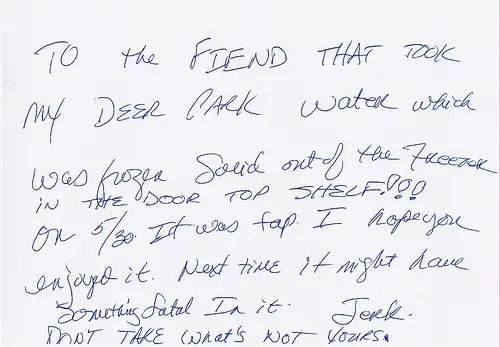 TO the FIEND THAT TOOK
MY DEER PARK Water which
was frozen Solid out of the Freezer
IN THE DOOR TOP SHELF!?!?!
ON 5/30. It was tap. I hope you
enjoyed it. Next time it might have
Something fatal In it. Jerk.
DONT TAKE What's NOT YOURS.